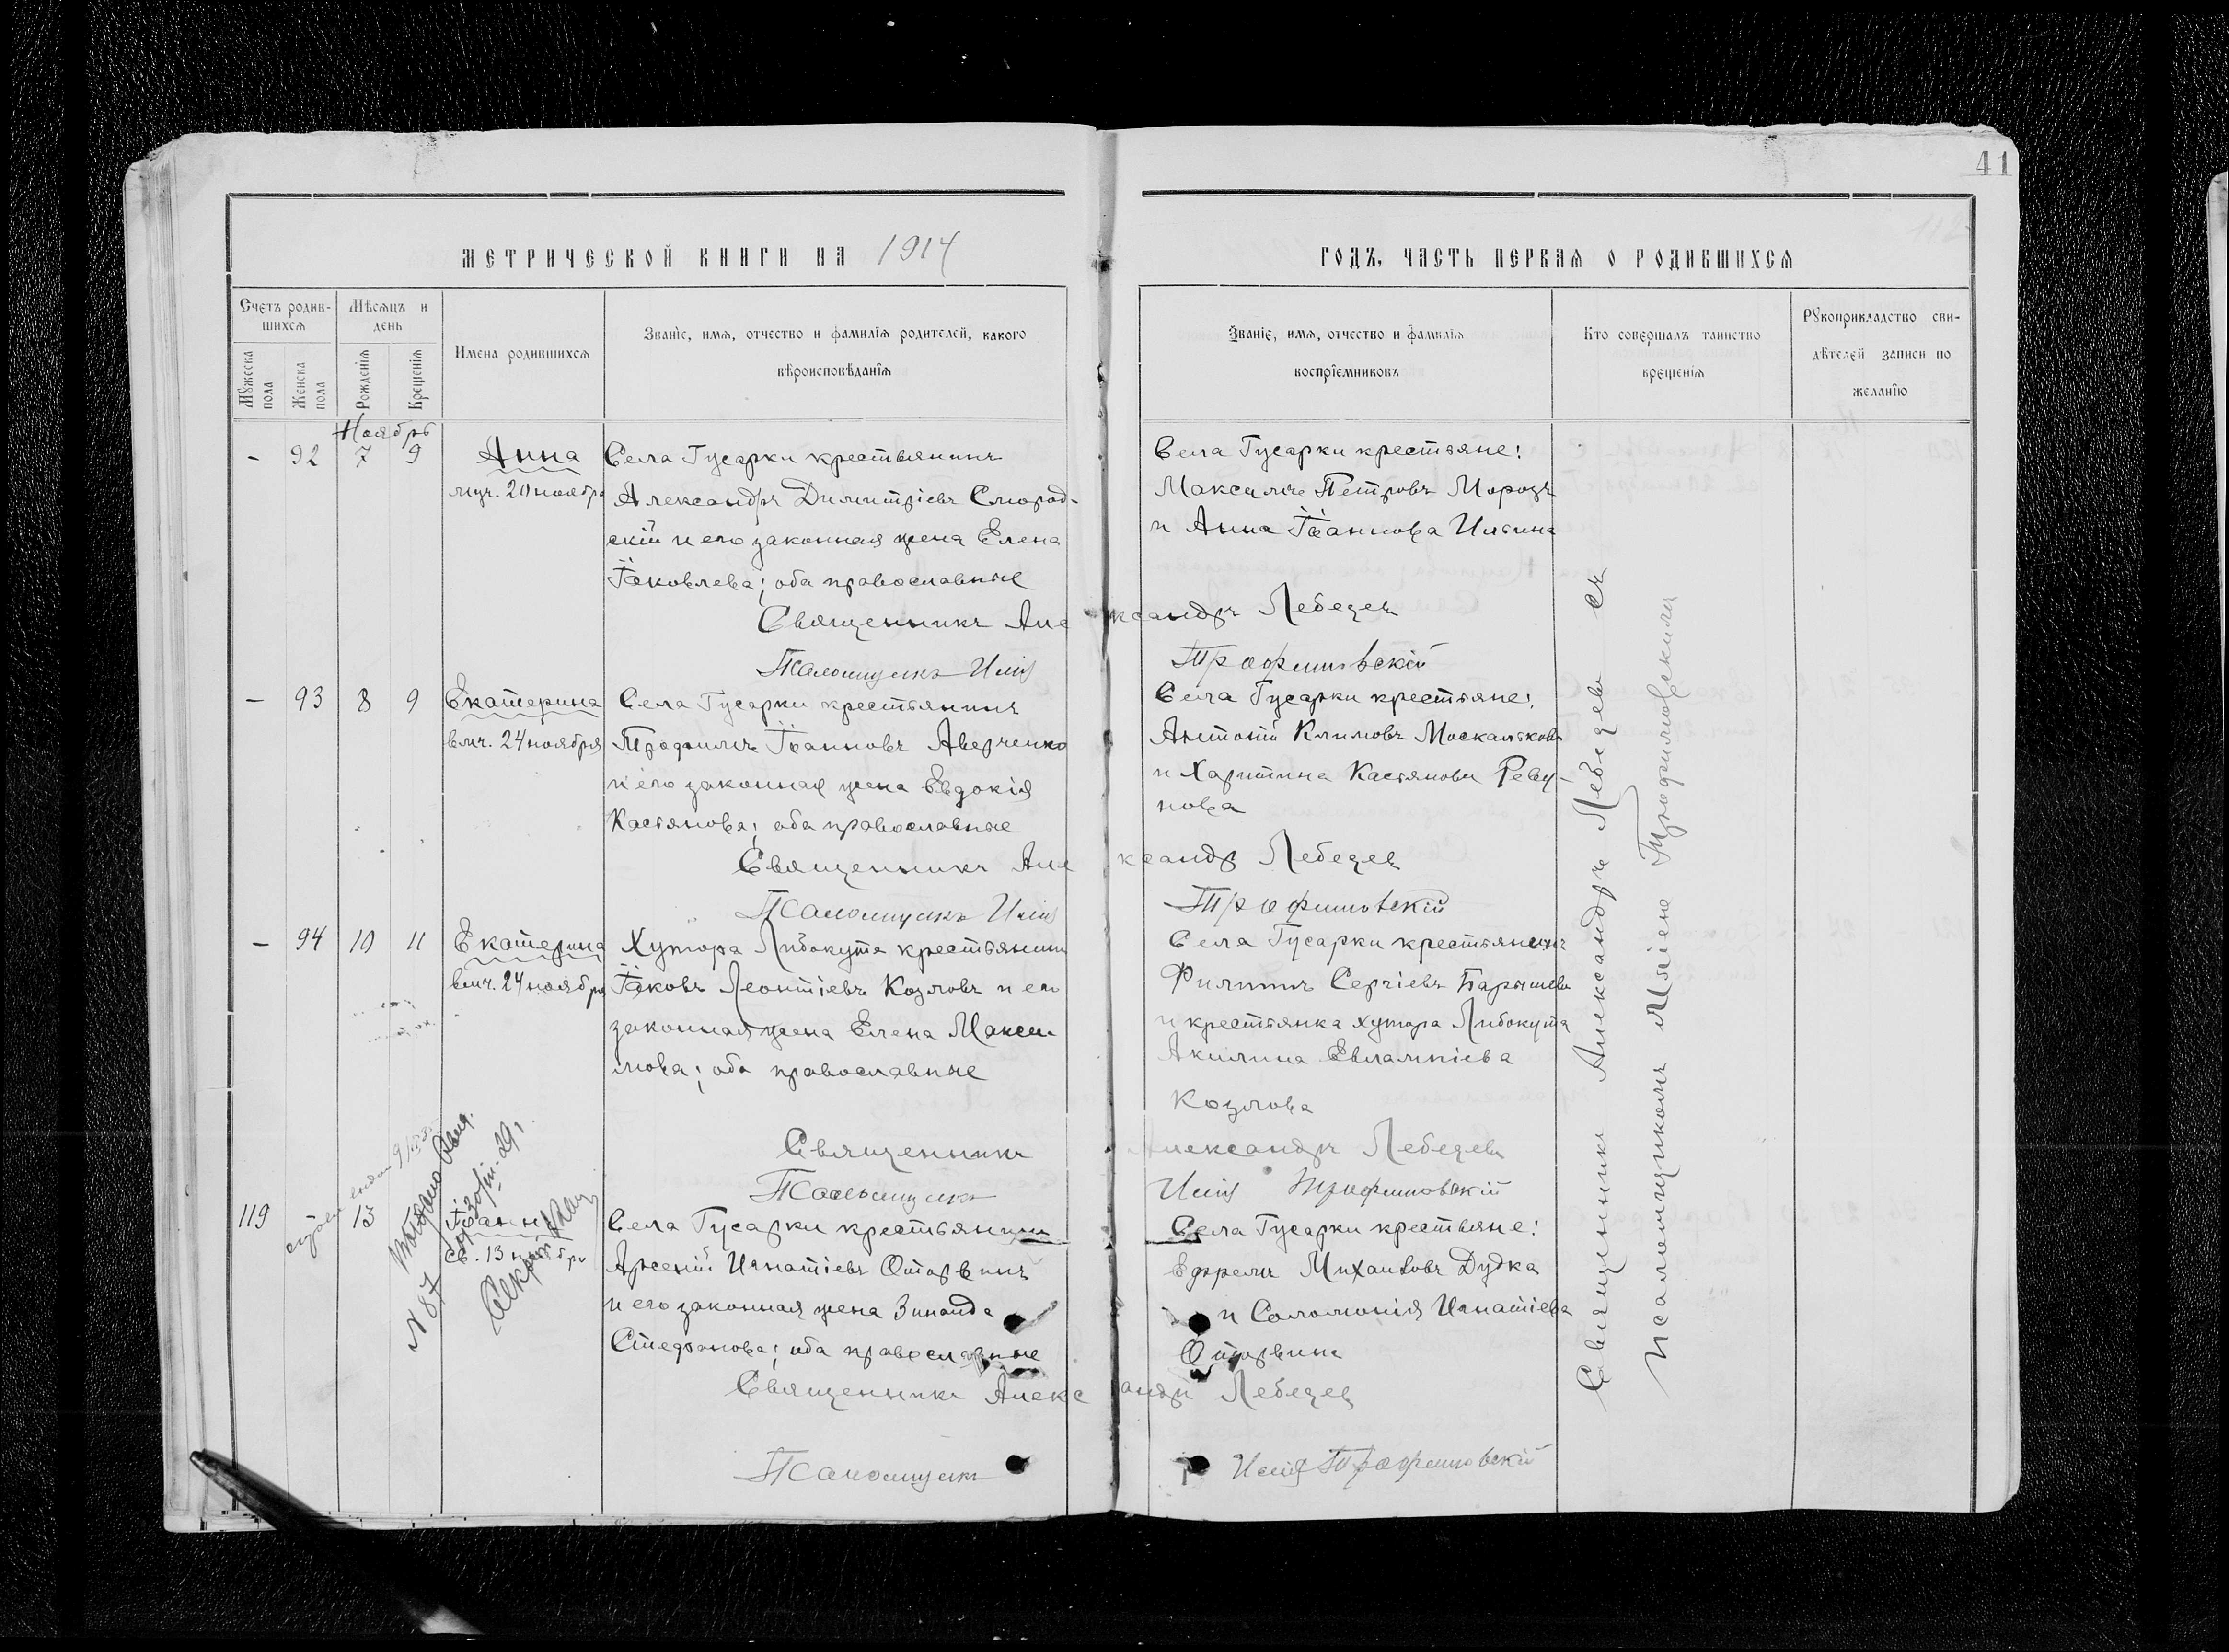 41
МЕТРИЧЕСКОЙ КНИГИ НА 1914
ГОДЪ, ЧАСТЬ ПЕРВАЯ О РОДИВШИХСЯ
Счетъ родив-
шихся
Мужеска
пола
Женска
пола
Мѣсяцъ и
день
Рожденія
Крещенія
Имена родившихся
Званіе, имя, отчество и фамилія родителей, какого
вѣроисповѣданія
Званіе, имя, отчество и фамилія
воспріемниковъ
Кто совершалъ таинство
крещенія
Рукоприкладство сви-
дѣтелей записи по
желанію
Ноябрь
- 92 7 9 Анна
муч. 20 ноября
Села Гусарки крестьянинъ
Александръ Димитріевъ Смород-
скій и его законная жена Елена
Іаковлева; оба православные
Села Гусарки крестьяне:
Максимъ Петровъ Морозъ
и Анна Іоаннова Ильина
Священникъ Александръ Лебедев
Псаломщикъ Илія Трофимовскій
- 93 8 9 Екатерина
влмч. 24 ноября
Села Гусарки крестьянинъ
Трофимъ Іоанновъ Аверченко
и его законная жена Евдокія
Касьянова; оба православные
Села Гусарки крестьяне:
Антоній Климовъ Москальковъ
и Харитина Касьянова Реву-
нова
Священникъ Александръ Лебедев
Псаломщикъ Илія Трофимовскій
- 94 10 11 Екатерина
влмч. 24 ноября
Хутора Либокута крестьянинъ
Іаковъ Леонтіевъ Козловъ и его
законная жена Елена Макси-
мова; оба православные
Села Гусарки крестьянинъ
Филиппъ Сергіевъ Барышевъ
и крестьянка хутора Либокута
Акилина Евлампіева
Козлова
Священникъ Александръ Лебедевъ
Псаломщикъ Илія Трофимовскій
119 - 13 Іоаннъ
св. 13 ноября
N 87
Села Гусарки крестьянинъ
Арсеній Игнатіевъ Оторвинъ
и его законная жена Зинаида
Стефанова; оба православные
Села Гусарки крестьяне:
Ефремъ Михаиловъ Дудка
и Соломонія Игнатіева
Оторвина
Священникъ Александръ Лебедев
Псаломщикъ Илія Трофимовскій
Священникъ Александръ Лебедевъ съ
псаломщикомъ Иліею Трофимовскимъ